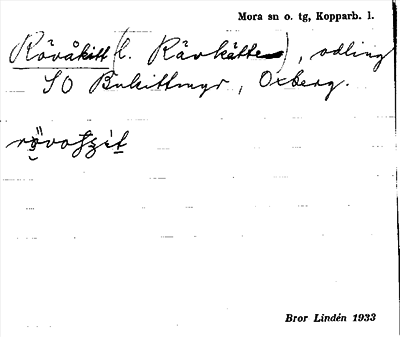 Mora sn o. tg, Kopparb. l.
Rövåkitt (l. Rävkätte), odling
SO Bukittmyr, Oxberg.
Bror Lindén 1933